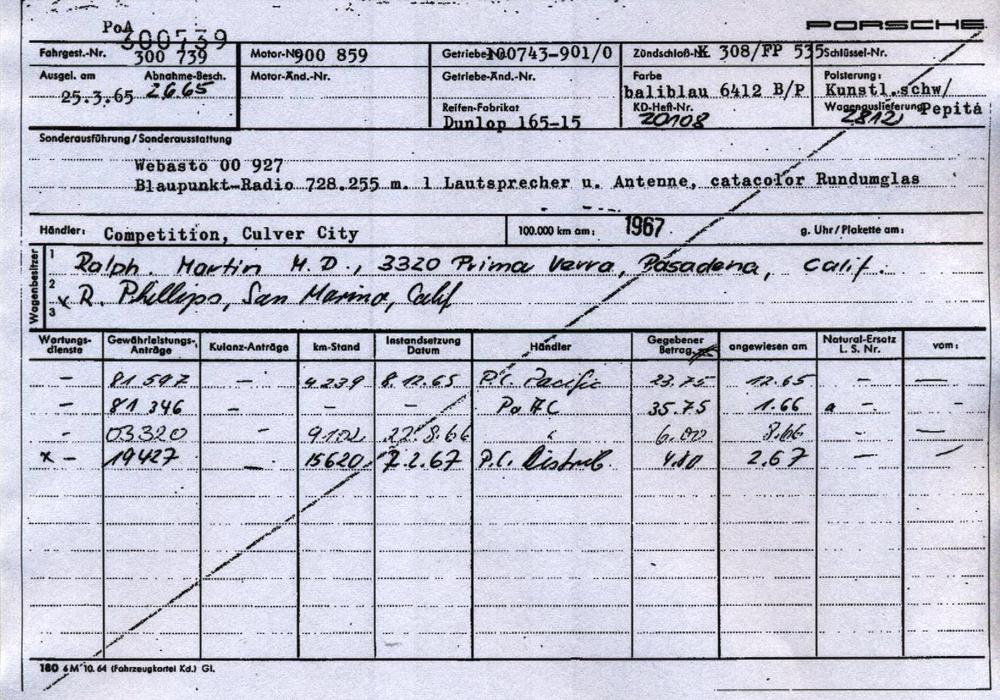 PoA
300539
PORSCHE
Fahrgest.-Nr. 300 739 Motor-Nr. 900 859 Getriebe-Nr. 100743-901/0 Zündschloß-Nr. K 308/FP 535 Schlüssel-Nr.
Ausgel. am Abnahme-Besch. Motor-Änd.-Nr. Getriebe-Änd.-Nr. Farbe Polsterung:
25.3.65 2665 baliblau 6412 B/P Kunstl.schw/
Reifen-Fabrikat KD-Heft-Nr. Wagenauslieferung Pepita
Dunlop 165-15 20108 2812
Sonderausführung/Sonderausstattung
Webasto 00 927
Blaupunkt-Radio 728.255 m. 1 Lautsprecher u. Antenne, catacolor Rundumglas
Händler: Competition, Culver City 100.000 km am: 1967 g. Uhr/Plakette am:
Wagenbesitzer
1 Ralph. Martin M.D., 3320 Prima Verra, Pasadena, Calif.
2 x R. Phillips, San Marino, Calif
3
Wartungs-dienste Gewährleistungs-Anträge Kulanz-Anträge km-Stand Instandsetzung Datum Händler Gegebener Betrag angewiesen am Natural-Ersatz L. S. Nr. vom:
— 81 597 — 4239 8.12.65 P.C. Pacific 23.75 12.65 — —
— 81 346 — — — Po AC 35.75 1.66 a — -
- 03320 - 9102 22.8.66 " 6.00 8.66 — —
x - 19427 — 15620 7.2.67 P.C. Distrib. 4.80 2.67 — —
180 6 M 10. 64 (Fahrzeugkartei Kd.) Gl.